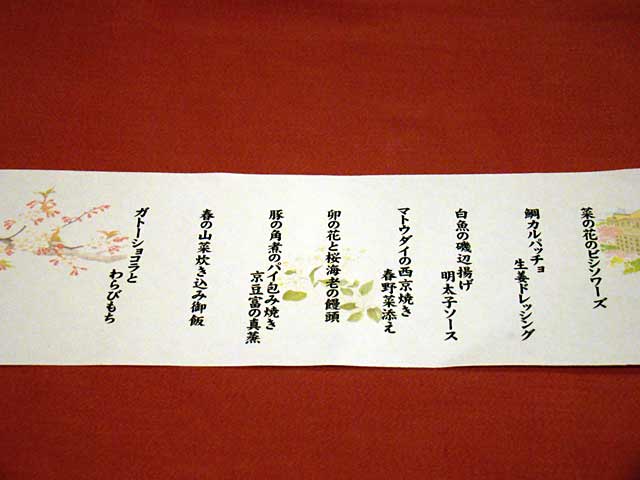 菜の花のビシソワーズ
鯛カルパッチョ
生姜ドレッシング
白魚の磯辺揚げ
明太子ソース
マトウダイの西京焼き
春野菜添え
卯の花と桜海老の饅頭
豚の角煮のパイ包み焼き
京豆富の真蒸
春の山菜炊き込み御飯
ガトーショコラと
わらびもち